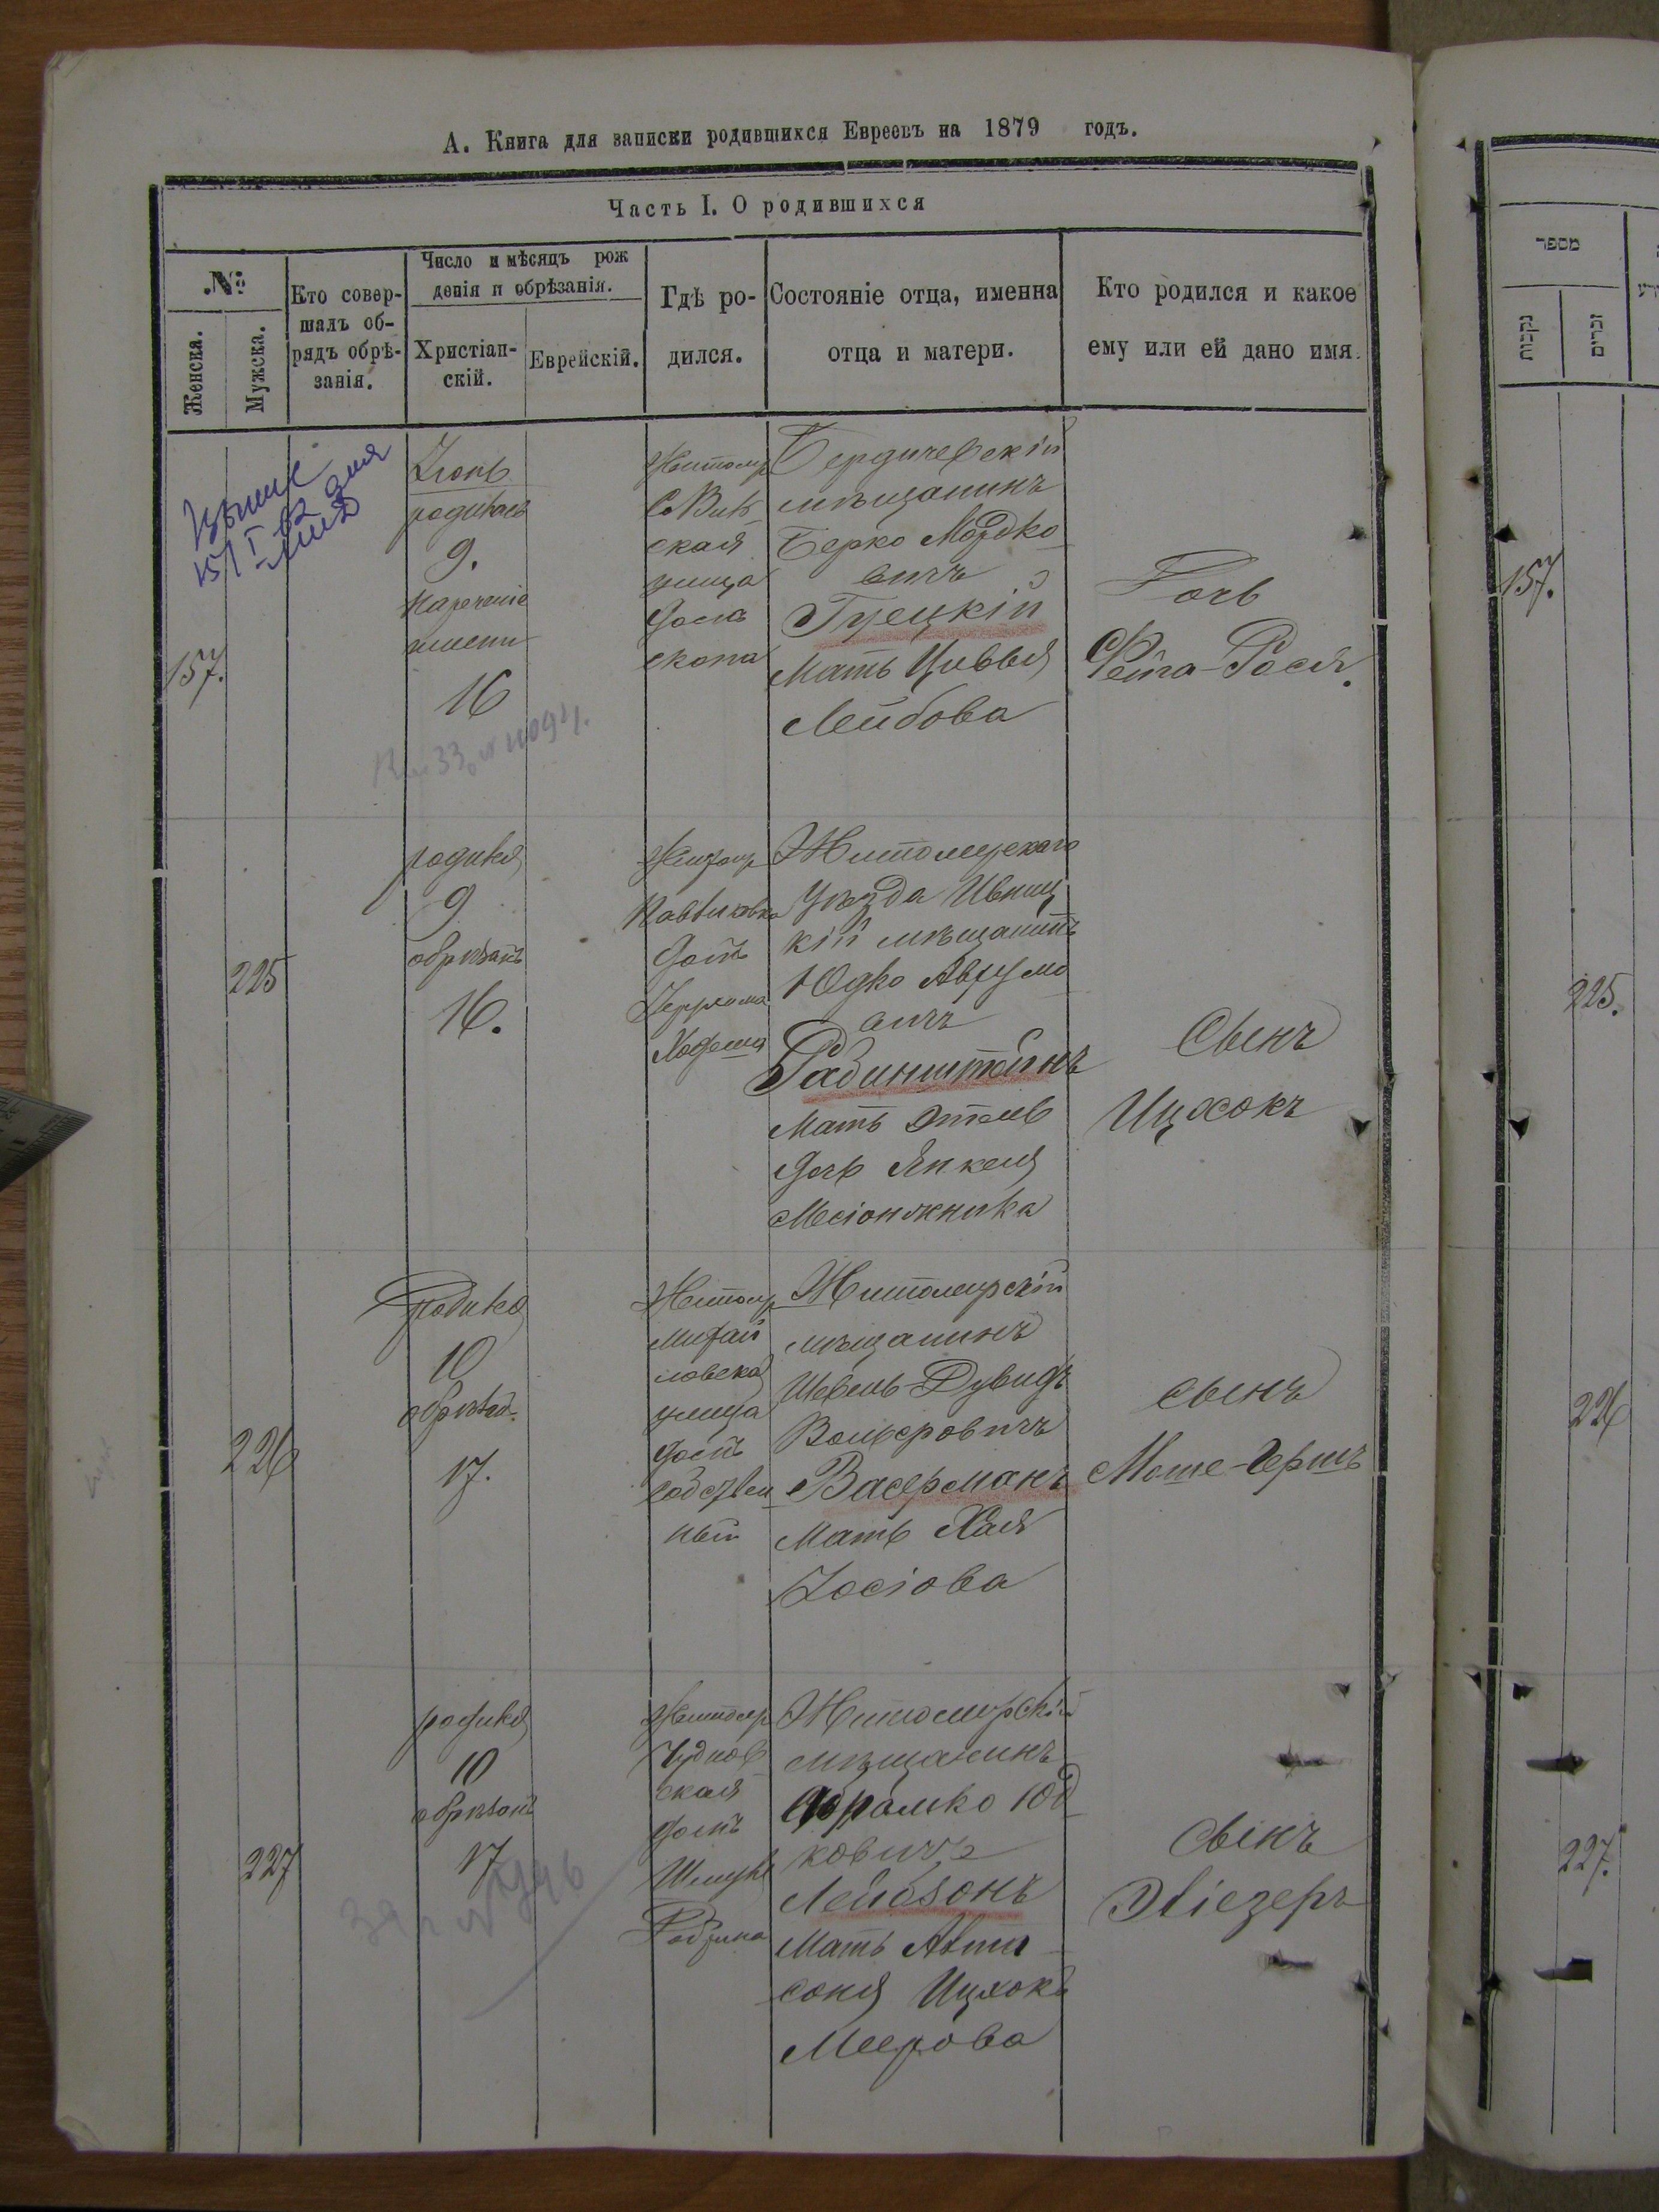 А. Книга для записки родившихся Евреевъ на 1879 годъ.
Часть I. О родившихся
№
Женска.
Мужска.
Кто совер-
шалъ об-
рядъ обрѣ-
занія.
Число и мѣсяцъ рож
денія и обрѣзанія.
Христіан-
скій.
Еврейскій.
Гдѣ ро-
дился.
Состояніе отца, именна
отца и матери.
Кто родился и какое
ему или ей дано имя.
157.
Іюнь
родилась
9.
Нареченіе
имени
16
Житомир
ская
улица
домъ
Бердичевскій
мѣщанинъ
Берко Мордко
вичъ
Грецкій
Мать Цивья
Лейбова
Дочь
Фейга-Рося.
225
родился
9
обрѣзанъ
16.
Житомир
домъ
Житомирскаго
Уѣзда Ивниц
кій мѣщанинъ
Юдко Аврумо
вичъ
Рабинштейнъ
Мать Этель
дочь Янкеля
Сынъ
Ицхокъ
226
Родился
10
обрѣзан.
17.
Житомир
Михай
ловская
улица
домъ
собствен
ный
Житомирскій
мѣщанинъ
Шевель-Дувидъ
Вольфовичъ
Васерманъ
Мать Хая
Іосіова
сынъ
Моше-Гершъ
227
родился
10
обрѣзанъ
17
Житомир
Чуднов
ская
домъ
Житомирскій
мѣщанинъ
Абрамко Юд
ковичъ
Лейбзонъ
Мать
Ицхокъ
Меерова
Сынъ
Эліезеръ
מספר
נקבות
זכרים
157.
225.
226
227.